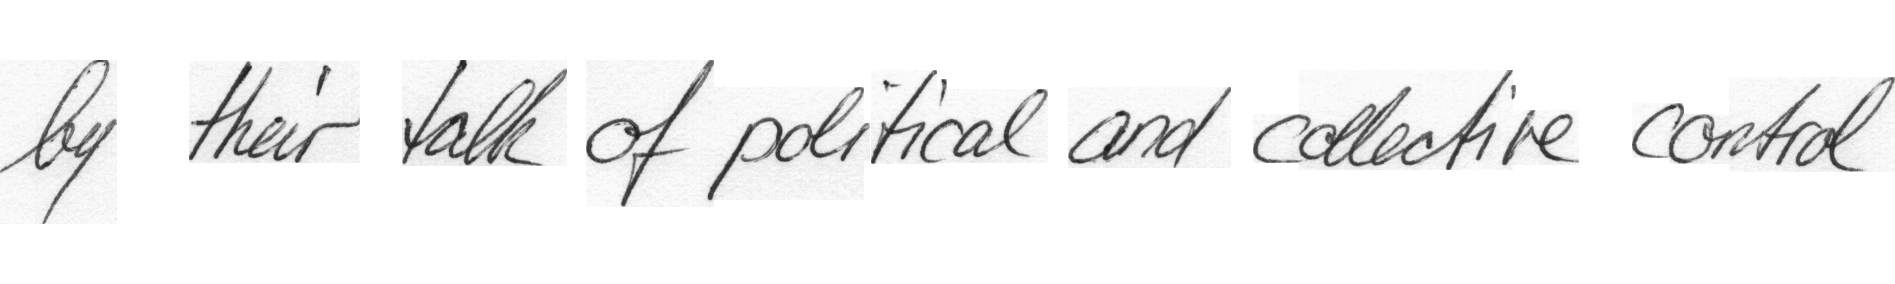 by their talk of political and collective control